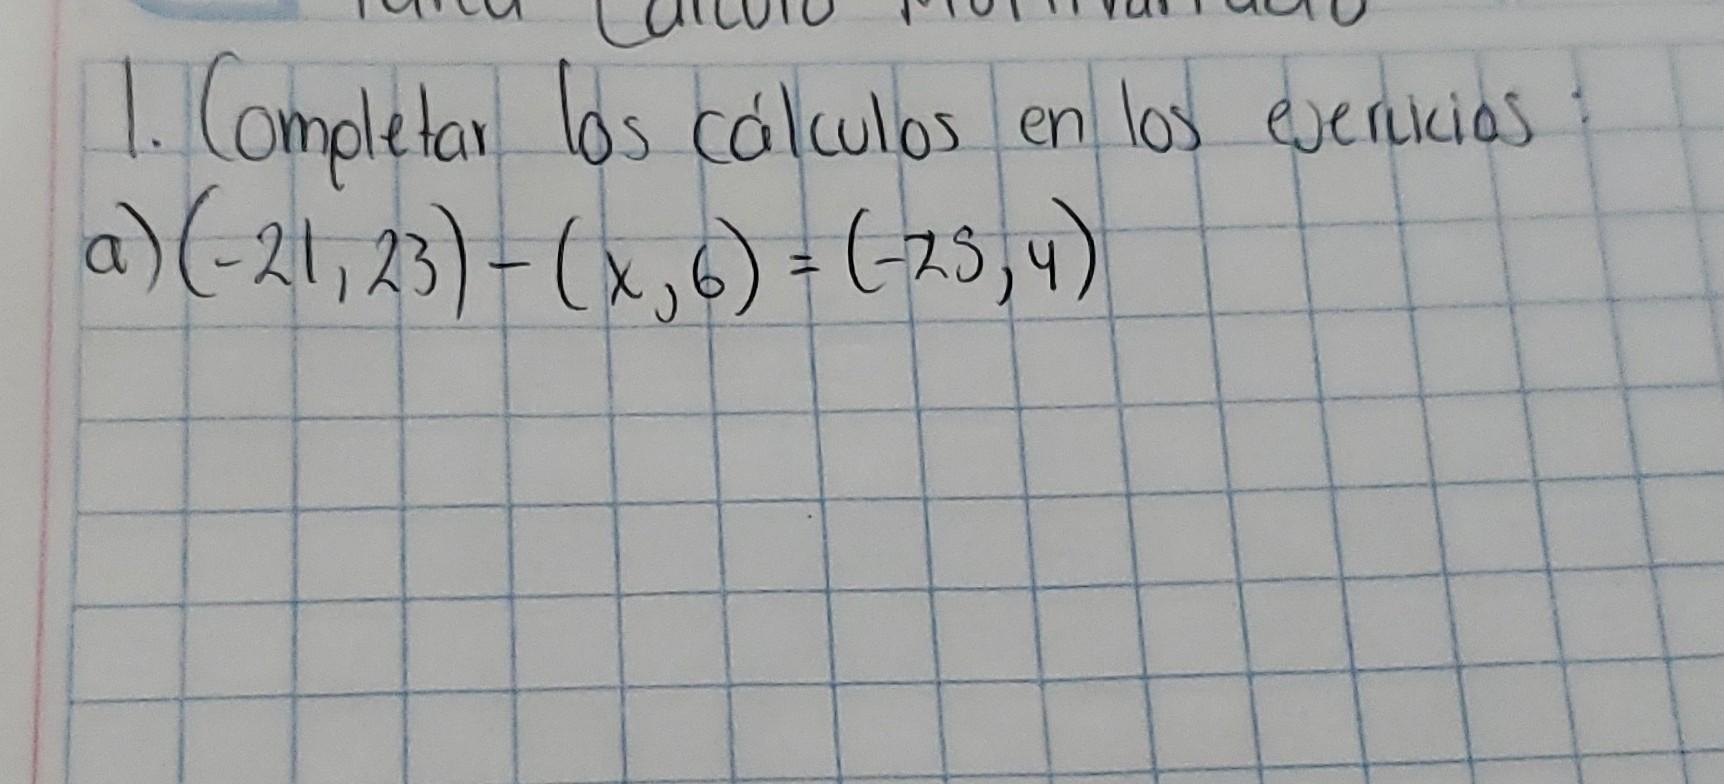 1. Completar los cálculos en los ejercicios:
a) (-21, 23) - (x, 6) = (-25, y)